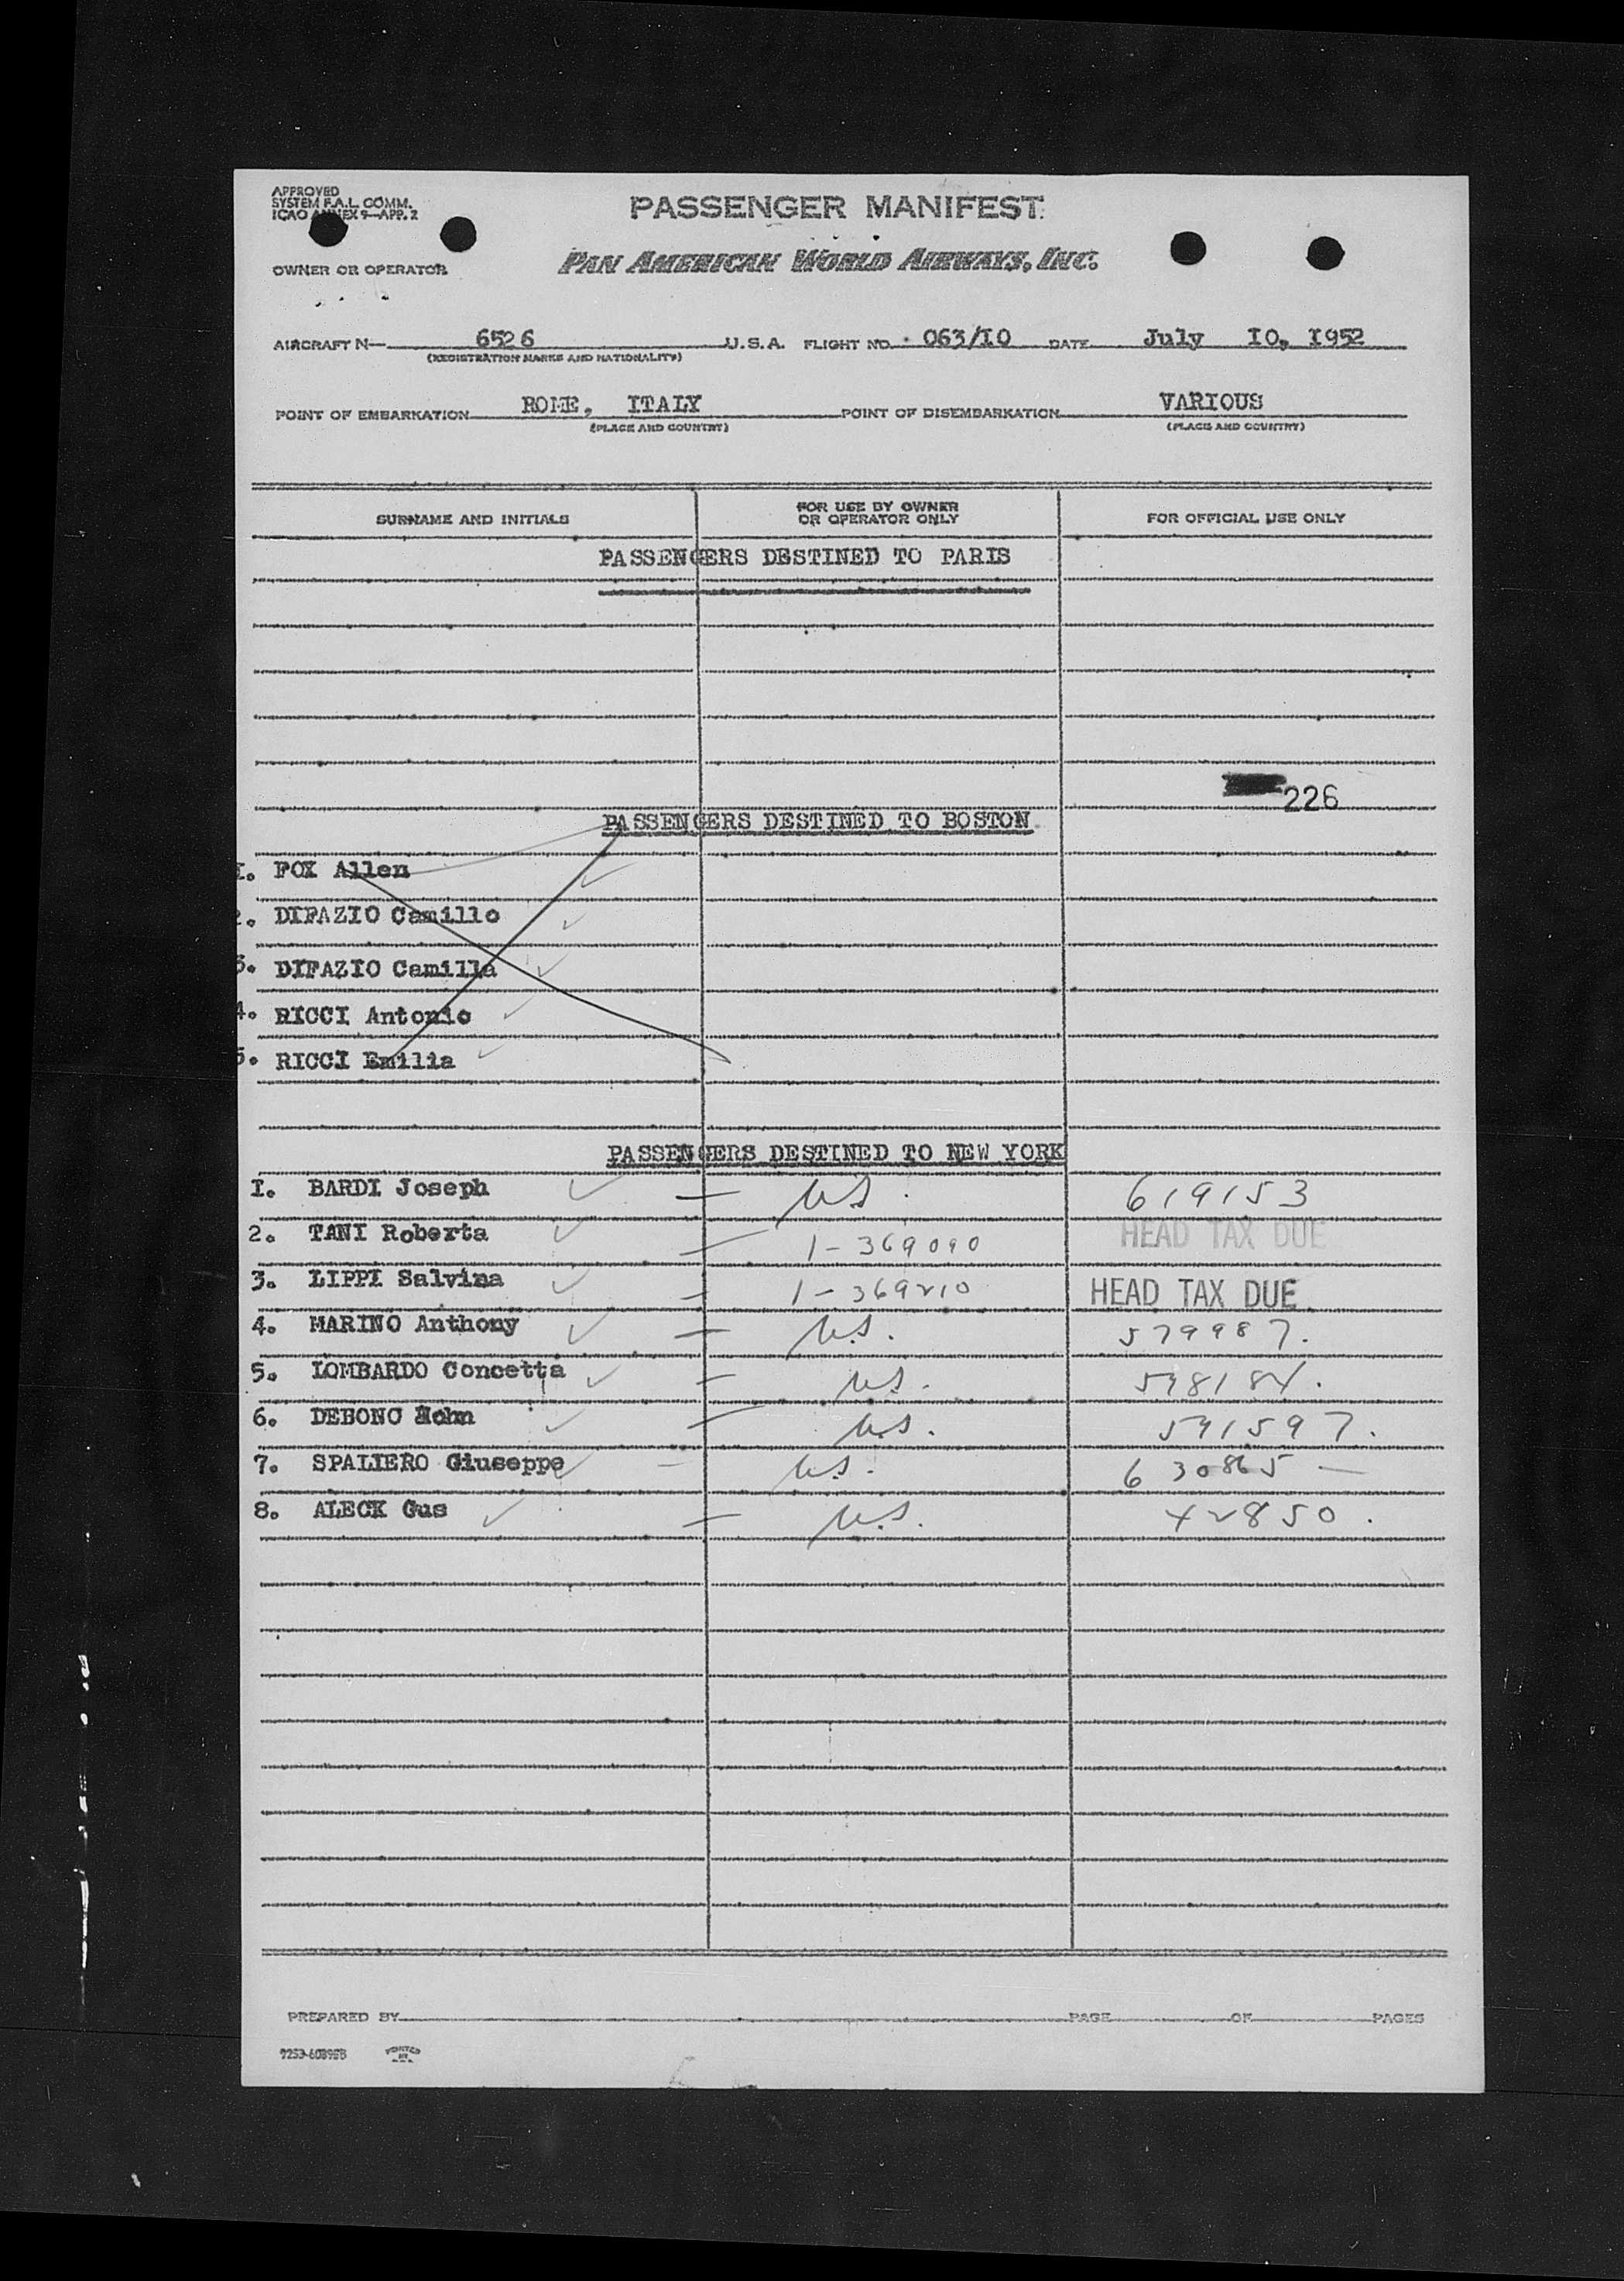 APPROVED
SYSTEM F.A.L. COMM.
ICAO ANNEX 9—APP. 2
PASSENGER MANIFEST
OWNER OR OPERATOR PAN AMERICAN WORLD AIRWAYS, INC.
AIRCRAFT N— 6526 U.S.A. FLIGHT NO. 063/I0 DATE July I0, I952
(REGISTRATION MARKS AND NATIONALITY)
POINT OF EMBARKATION ROME, ITALY POINT OF DISEMBARKATION VARIOUS
(PLACE AND COUNTRY) (PLACE AND COUNTRY)
SURNAME AND INITIALS FOR USE BY OWNER OR OPERATOR ONLY FOR OFFICIAL USE ONLY
PASSENGERS DESTINED TO PARIS
226
PASSENGERS DESTINED TO BOSTON
I. FOX Allen
2. DIFAZIO Camillo
3. DIFAZIO Camilla
4. RICCI Antonio
5. RICCI Emilia
PASSENGERS DESTINED TO NEW YORK
I. BARDI Joseph — U.S. 619153
2. TANI Roberta — 1-369090 HEAD TAX DUE
3. LIPPI Salvina — 1-369210 HEAD TAX DUE
4. MARINO Anthony — U.S. 579987.
5. LOMBARDO Concetta — U.S. 598184.
6. DEBONO John — U.S. 591597.
7. SPALIERO Giuseppe — U.S. 630865 —
8. ALECK Gus — U.S. 42850.
PREPARED BY PAGE OF PAGES
PRINTED IN U.S.A.